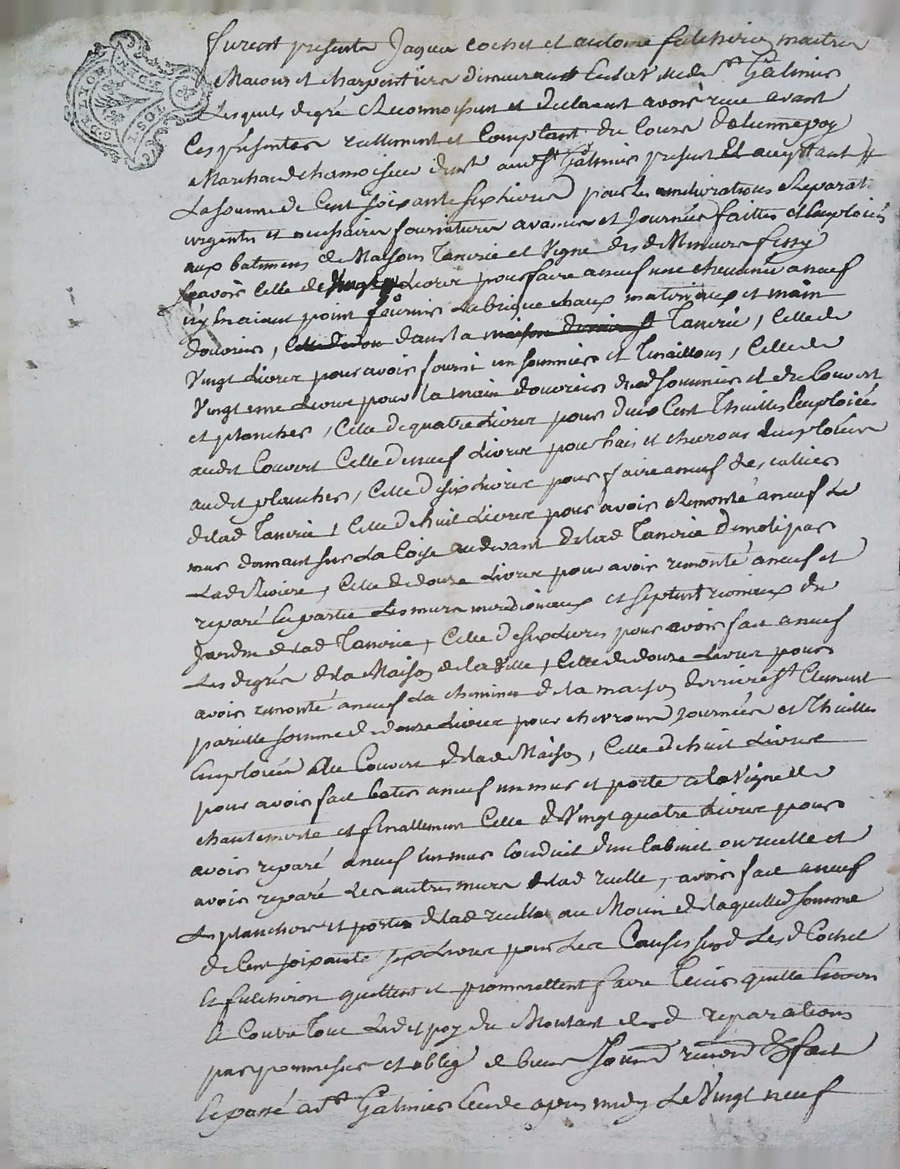 furent présents Jaques cochet et antoine fulchiron maitres
Macons et charpentiers demeurant en la ville de St Galmier
Lesquels de gré Reconnoissent et declarent avoir receu avant
Ces présentes réellement et Comptant du sieur
Marchand chamoiseur dud St Galmier present et acceptant
La somme de Cent soixante six livres pour les améliorations Reparat.
urgentes et necessaires fournitures avances et Journées faittes et Emploiés
aux batimens de Maison Tannerie et Vigne des de Mineurs
scavoir Celle de Livres pour faire a neuf une cheminée a neuf
n'y En aiant point fournir La brique chaux materiaux et main
douvriers, dans la Tannerie, Celle de
Vingt Livres pour avoir fourni un sommier et Tiraillons, Celle de
Vingt une Livres pour la main douvriers dud Sommier et du Couvert
et planches, Celle de quatre Livres pour deux Cent Thuilles Emploiées
audit Couvert Celle de neuf Livres pour bois et chevrons Emploiés
audit plancher, Celle de six Livres pour faire a neuf des calliers
de lad Tannerie, Celle de huit Livres pour avoir Remonté a neuf Le
mur donnant sur La Coise au devant de lad Tannerie demoli par
Lad Riviere, Celle de douze Livres pour avoir remonté a neuf et
reparé En partie Les murs meridionaux et septentrionaux du
Jardin de lad Tannerie, Celle de six Livres pour avoir fait a neuf
Les degrés de la Maison de la Ville, Celle de douze Livres pour
avoir remonté a neuf La cheminée de la maison derriere St Clement
pareille somme de douze Livres pour chevrons Journées et Thuilles
Emploiées au Couvert de lad Maison, Celle de huit Livres
pour avoir fait batir a neuf un mur et porte a la Vigne de
et finallement Celle de Vingt quatre Livres pour
avoir reparé a neuf un mur Conduit d'un Cabinet ou ruelle et
avoir reparé Les autres murs de lad ruelle, avoir fait a neuf
Les planchers et portes de lad ruelle au Moien de laquelle somme
de Cent soixante six Livres pour Les Causes susd Les d Cochet
Et fulchiron quittent et promettent faire Tenir quitte Envers
et Contre Tous du Montant desd reparations
par promesses et oblig. de biens Soumd renond fait
Et passé a St Galmier Etude apres midy Le Vingt neuf